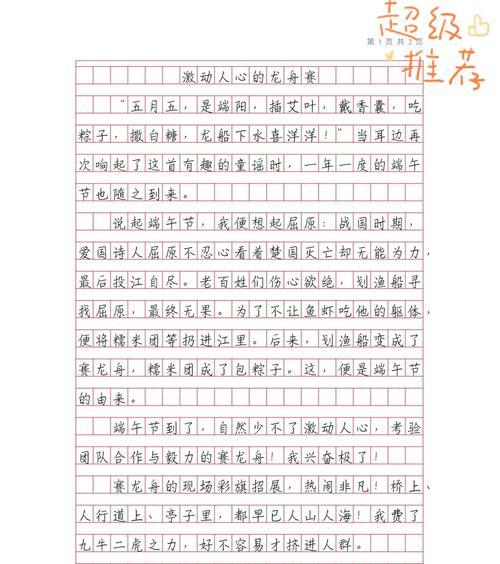 超级
推荐
第 1 页 共 2 页
激动人心的龙舟赛
“五月五，是端阳，插艾叶，戴香囊，吃
粽子，撒白糖，龙船下水喜洋洋！”当耳边再
次响起了这首有趣的童谣时，一年一度的端午
节也随之到来。
说起端午节，我便想起屈原：战国时期，
爱国诗人屈原不忍心看着楚国灭亡却无能为力，
最后投江自尽。老百姓们伤心欲绝，划渔船寻
找屈原，最终无果。为了不让鱼虾吃他的躯体，
便将糯米团等扔进江里。后来，划渔船变成了
赛龙舟，糯米团成了包粽子。这，便是端午节
的由来。
端午节到了，自然少不了激动人心，考验
团队合作与毅力的赛龙舟！我兴奋极了！
赛龙舟的现场彩旗招展，热闹非凡！桥上、
人行道上、亭子里，都早已人山人海！我费了
九牛二虎之力，好不容易才挤进人群。